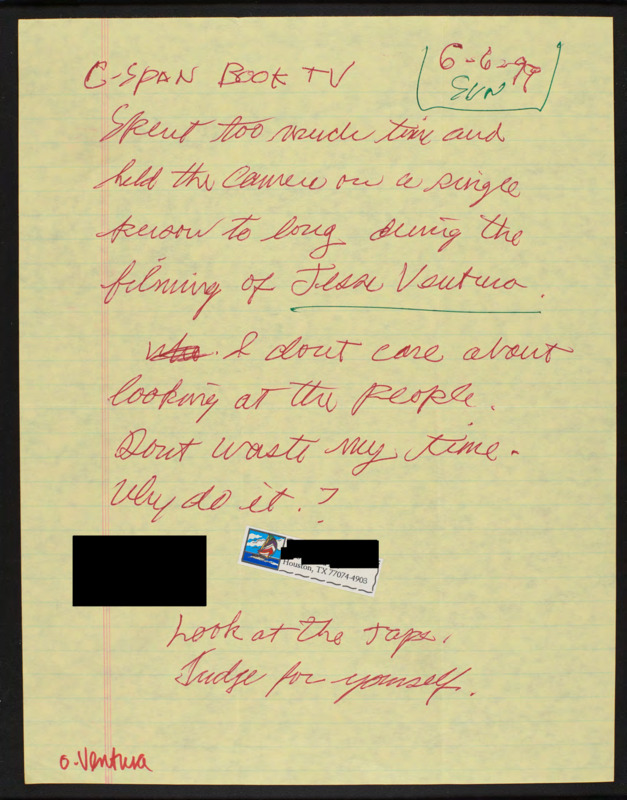 C-SPAN BOOK TV
6-6-99
SUN
Spent too much time and
held the camera on a single
person to long during the
filming of Jesse Ventura.
I dont care about
looking at the people.
Dont waste my time.
Why do it.?
Houston, TX 77074-4903
Look at the tape.
Judge for yourself.
O. Ventura